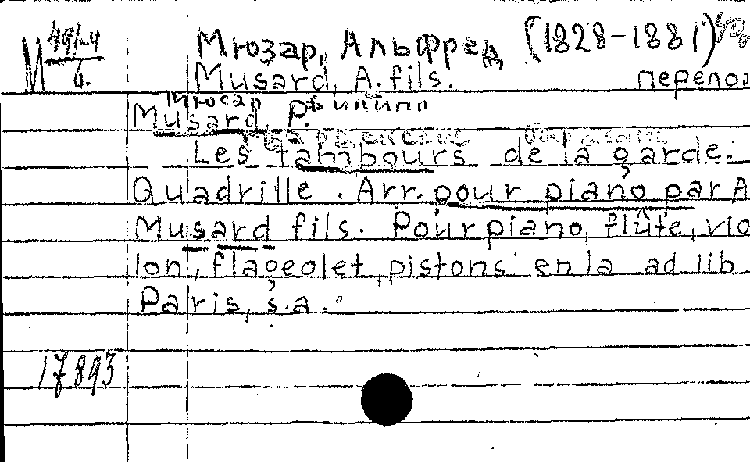 Мюзар, Альфред (1828-1881)
Musard, A. fils. перелож
Мюсар Филипп
Musard, P.
Les tambours de la garde.
Quadrille. Arr. pour piano par A
Musard fils. Pour piano, flûte, vio
lon, flageolet, pistons en la ad lib
Paris, s.a.
17893